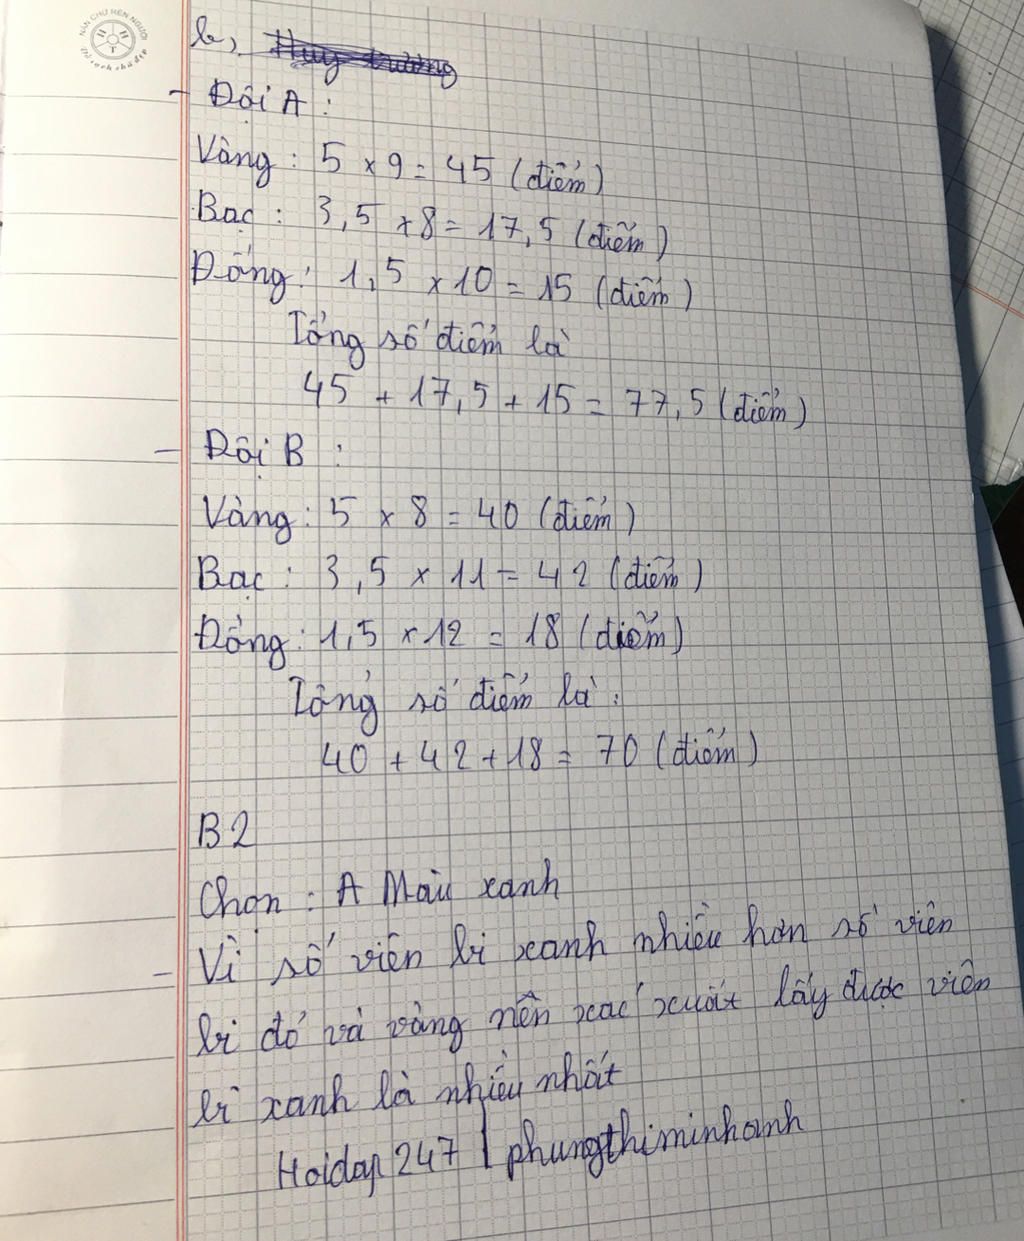 NẮN CHỮ RÈN NGƯỜI
H H T
Vở sạch chữ đẹp
b,
- Đội A :
Vàng : 5 x 9 = 45 (điểm)
Bạc : 3,5 x 8 = 17,5 (điểm)
Đồng : 1,5 x 10 = 15 (điểm)
Tổng số điểm là
45 + 17,5 + 15 = 77,5 (điểm)
- Đội B :
Vàng : 5 x 8 = 40 (điểm)
Bạc : 3,5 x 11 = 42 (điểm)
Đồng : 1,5 x 12 = 18 (điểm)
Tổng số điểm là :
40 + 42 + 18 = 70 (điểm)
B2
Chọn : A Màu xanh
- Vì số viên bi xanh nhiều hơn số viên
bi đỏ và vàng nên xác xuất lấy được viên
bi xanh là nhiều nhất
Hoidap247 | phungthiminhanh